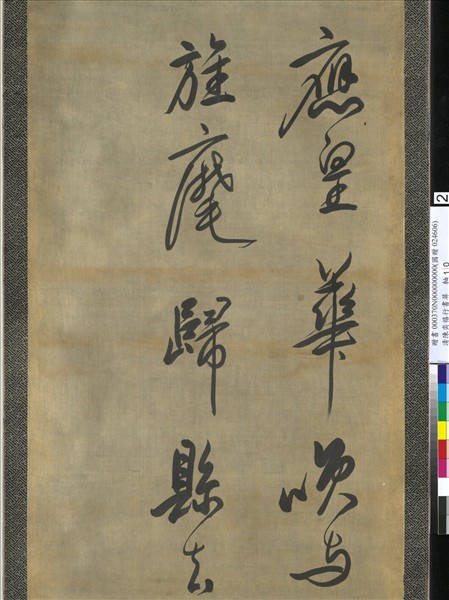 應皇華与
旌麾歸縣去
2
贈書 000370N000000000(舊贈 024606)
清陳奕禧行書屏 軸 1:0